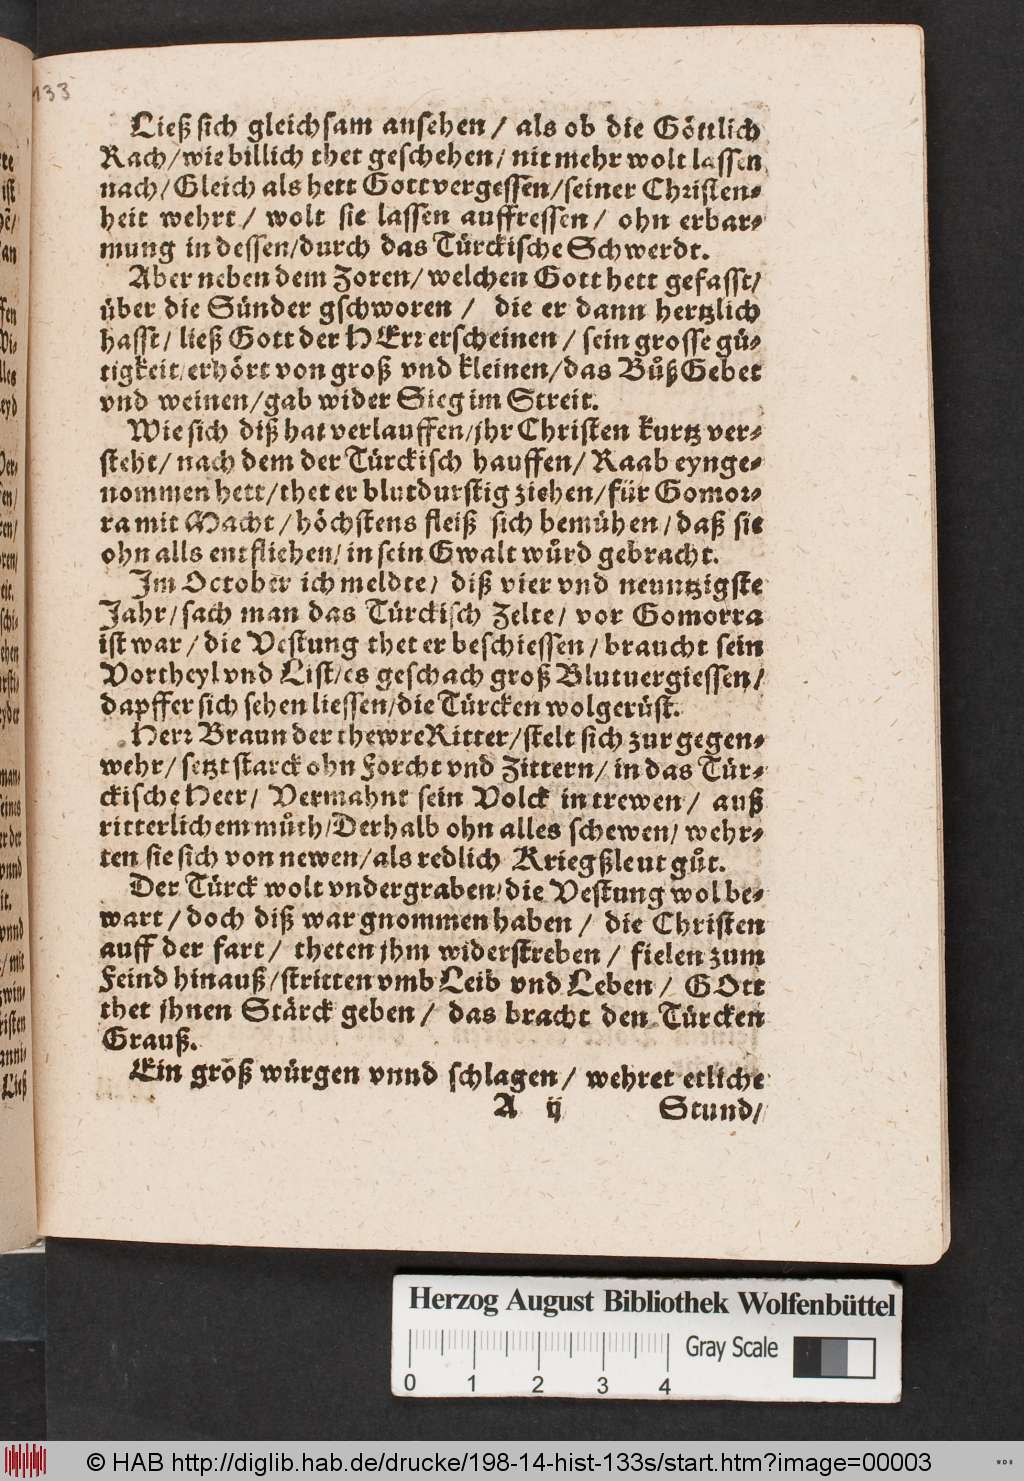 133
Ließ sich gleichsam ansehen / als ob die Göttlich
Rach / wie billich thet geschehen / nit mehr wolt lassen
nach / Gleich als hett Gott vergessen / seiner Christen-
heit wehrt / wolt sie lassen auffressen / ohn erbar-
mung in dessen / durch das Türckische Schwerdt.
Aber neben dem Zoren / welchen Gott hett gefasst /
über die Sünder gschworen / die er dann hertzlich
hasst / ließ Gott der HErr erscheinen / sein grosse gü-
tigkeit / erhört von groß vnd kleinen / das Bůß Gebet
vnd weinen / gab wider Sieg im Streit.
Wie sich diß hat verlauffen / jhr Christen kurtz ver-
steht / nach dem der Türckisch hauffen / Raab eynge-
nommen hett / thet er blutdurstig ziehen / für Gomor-
ra mit Macht / höchstens fleiß sich bemühen / daß sie
ohn alls entfliehen / in sein Gwalt wůrd gebracht.
Im October ich meldte / diß vier vnd neuntzigste
Jahr / sach man das Türckisch Zelte / vor Gomorra
ist war / die Vestung thet er beschiessen / braucht sein
Vortheyl vnd List / es geschach groß Blutuergiessen /
dapffer sich sehen liessen / die Türcken wolgerüst.
Herr Braun der thewre Ritter / stelt sich zur gegen-
wehr / setzt starck ohn Forcht vnd Zittern / in das Tür-
ckische Heer / Vermahnt sein Volck in trewen / auß
ritterlichem můth / Derhalb ohn alles schewen / wehr-
ten sie sich von newen / als redlich Kriegßleut gůt.
Der Türck wolt vndergraben / die Vestung wol be-
wart / doch diß war gnommen haben / die Christen
auff der fart / theten jhm widerstreben / fielen zum
Feind hinauß / stritten vmb Leib vnd Leben / GOtt
thet jhnen Stärck geben / das bracht den Türcken
Grauß.
Ein groß würgen vnnd schlagen / wehret etliche
A ij Stund /
Herzog August Bibliothek Wolfenbüttel
Gray Scale
0 1 2 3 4
© HAB http://diglib.hab.de/drucke/198-14-hist-133s/start.htm?image=00003